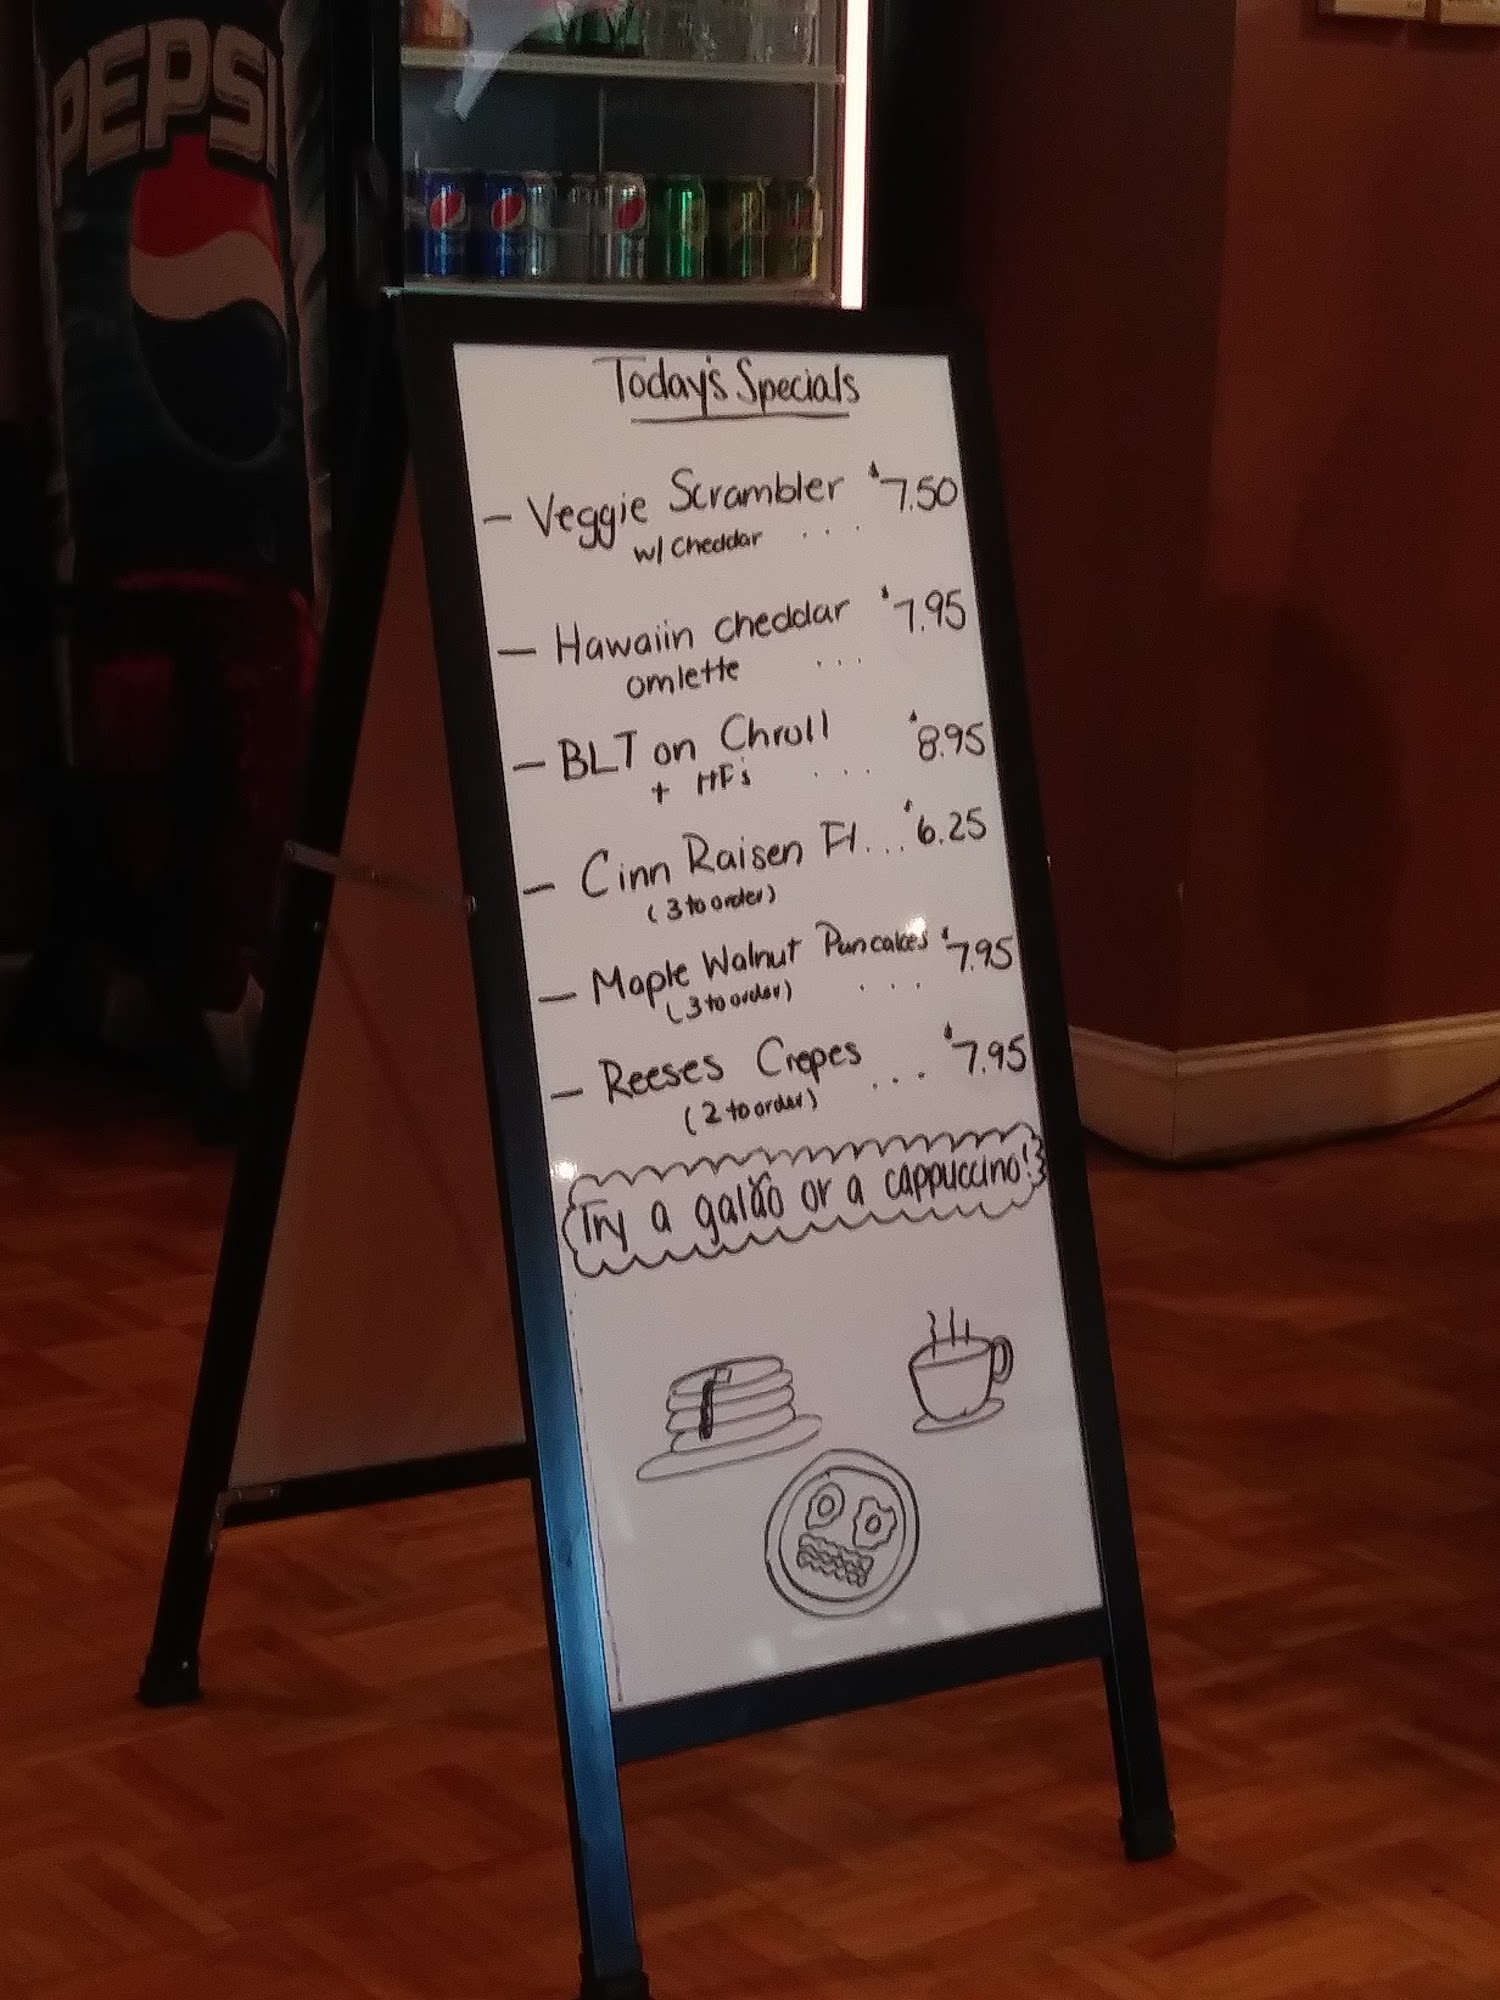 PEPSI
Today's Specials
- Veggie Scrambler $7.50
w/ Cheddar ...
- Hawaiin cheddar $7.95
omlette ...
- BLT on Chroll $8.95
+ HF's ...
- Cinn Raisen Ft... $6.25
(3 to order)
- Maple Walnut Pancakes $7.95
(3 to order) ...
- Reeses Crepes ... $7.95
(2 to order)
Try a galão or a cappuccino!